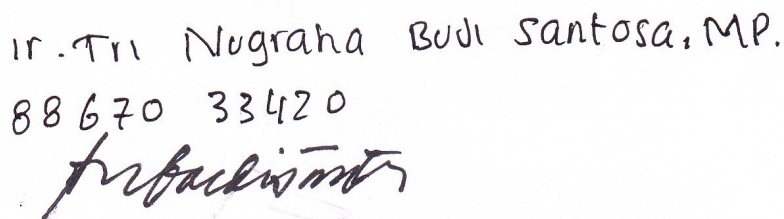 Ir. Tri Nugraha Budi Santosa, MP.
88670 33420